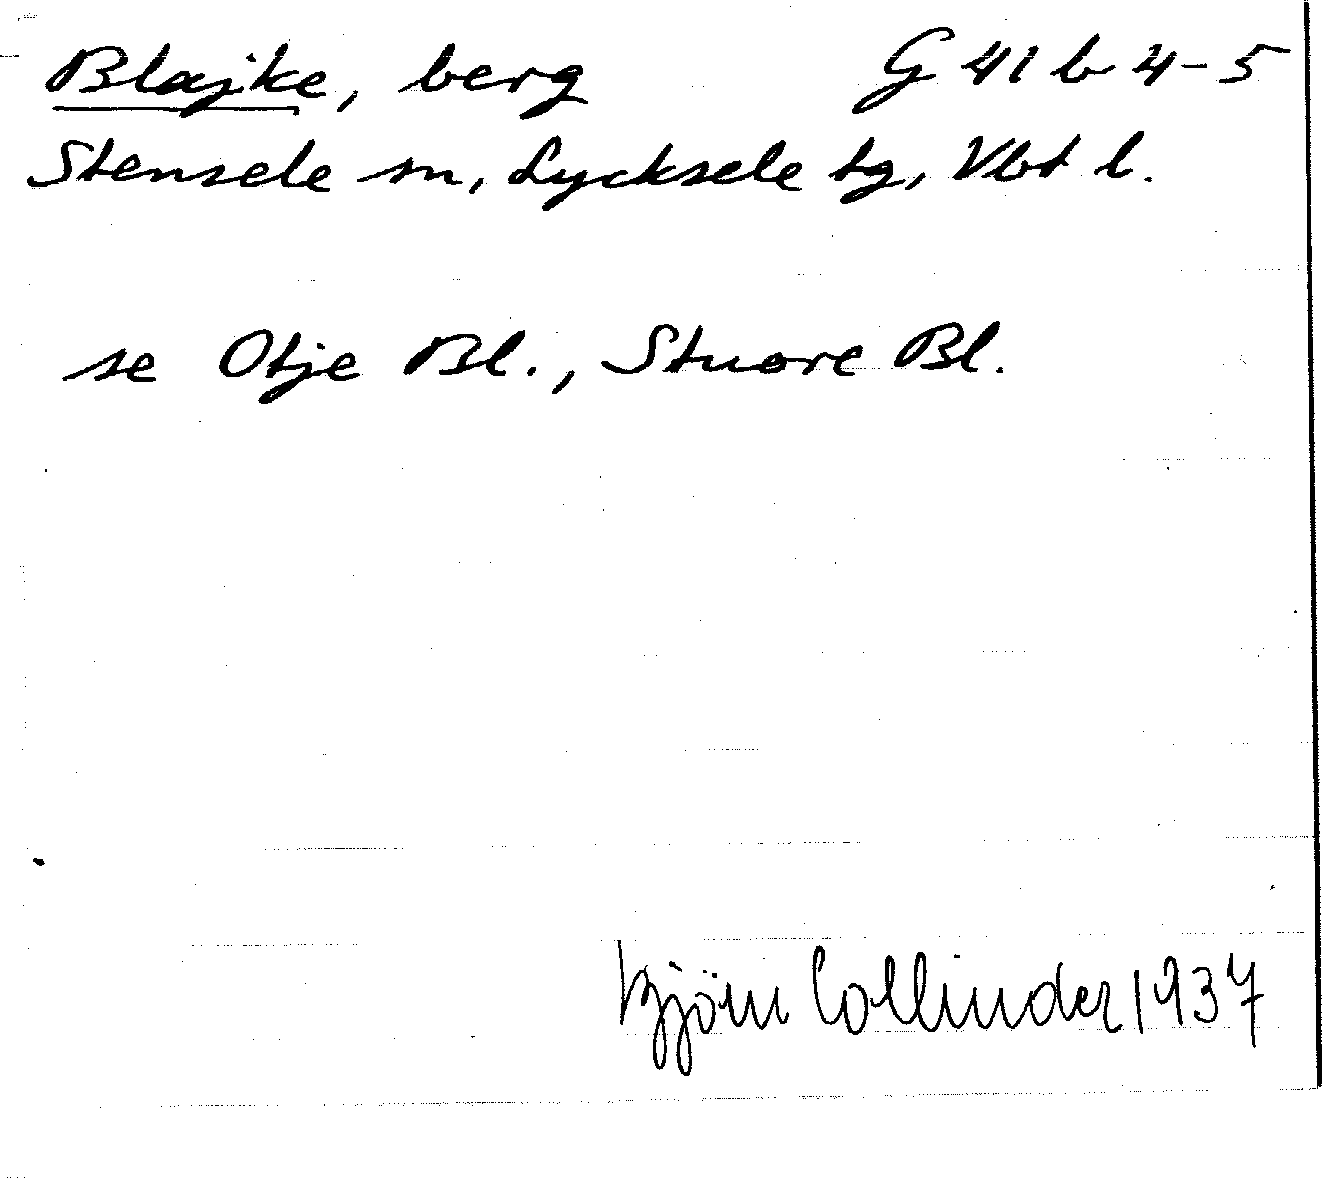 Blajke, berg G 41 b 4-5
Stensele sn, Lycksele tg, Vbt l.
se Otje Bl., Stuore Bl.
Björn Collinder 1937